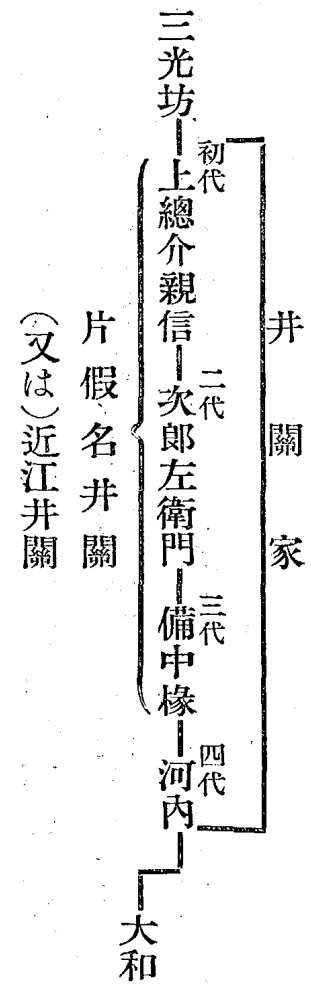 井關家
三光坊
初代
上總介親信
二代
次郎左衞門
三代
備中椽
四代
河內
大和
片假名井關
(又は)近江井關